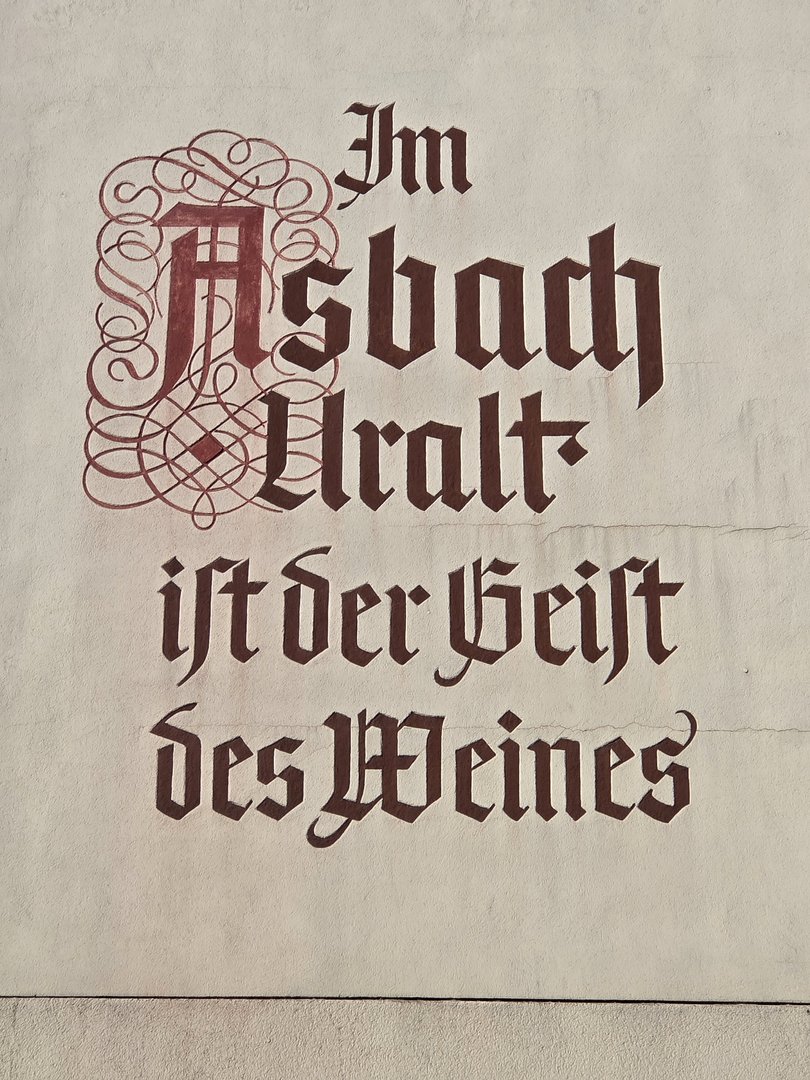 Im
Asbach
Uralt
iſt der Geiſt
des Weines